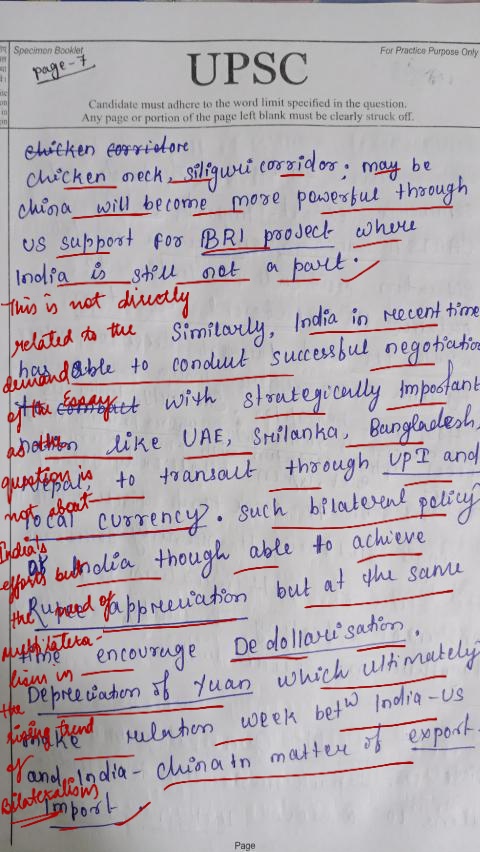 Specimen Booklet
page-7
For Practice Purpose Only
UPSC
Candidate must adhere to the word limit specified in the question.
Any page or portion of the page left blank must be clearly struck off.
chicken corridore
chicken neck, siliguri corridor; may be
china will become more powerful through
US support for BRI project where
India is still not a part.
Similarly, India in recent time
has able to conduct successful negotiation
with strategically important
nation like UAE, Srilanka, Bangladesh,
Nepal, to transact through UPI and
local currency. such bilateral policy
of India though able to achieve
Rupee appreciation but at the same
time encourage Dedollarisation.
Depreciation of Yuan which ultimately
make relation week betw India-US
and India-China in matter of export-
Import
This is not directly
related to the
demand
of the Essay
as the
question is
not about
India's
efforts but
the need of
multilatera-
lism in
the
rising trend
of
Bilateralism
Page